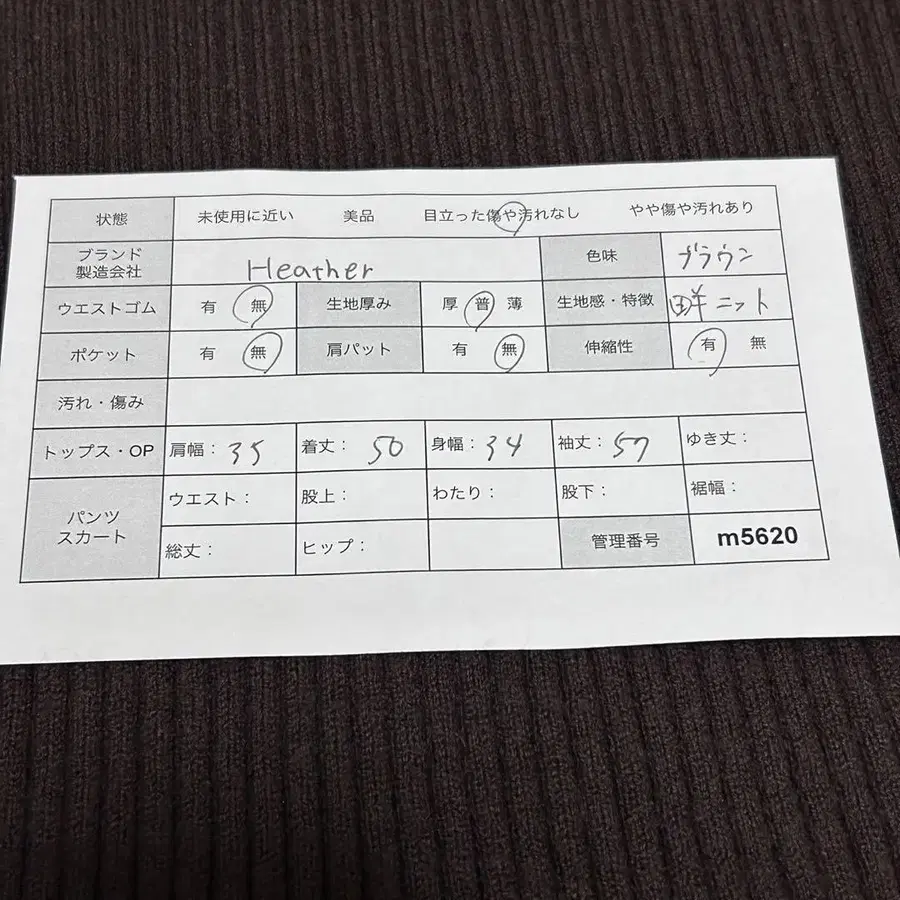 状態 未使用に近い 美品 目立った傷や汚れなし やや傷や汚れあり
ブランド
製造会社 Heather 色味 ブラウン
ウエストゴム 有 無 生地厚み 厚 普 薄 生地感・特徴 ニット
ポケット 有 無 肩パット 有 無 伸縮性 有 無
汚れ・傷み
トップス・OP 肩幅: 35 着丈: 50 身幅: 34 袖丈: 57 ゆき丈:
パンツ
スカート ウエスト: 股上: わたり: 股下: 裾幅:
総丈: ヒップ: 管理番号 m5620